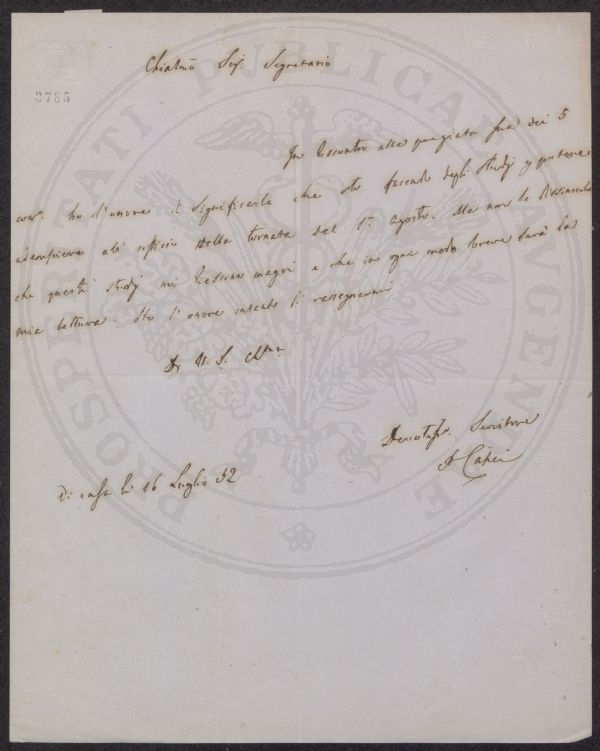 Chiarmo Sigr. Segretario
2785
In riscontro alla pregiata sua dei 5
corr. ho l'onore di significarle che sto facendo degli studj p potere
adempiere all' ufficio della tornata del 1° Agosto. Ma non le dissimulo
che questi studj mi riescono magri e che in ogni modo breve sarà la
mia lettura. Ho l'onore intanto di rassegnarmi
Di V. S. Chma
Devotmo. Servitore
P Capei
Di casa li 16 Luglio 52
PROSPERITATI PUBLICAE AUGENDAE